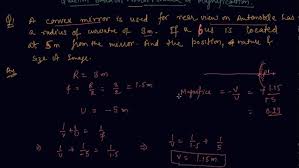 Q) A convex mirror is used for rear view on Automobile has
a radius of curvature of 3m. If a bus is located
at 5m from the mirror. Find the position, nature &
Size of Image.
R = 3m
f = R/2 = 3/2 = 1.5m
u = -5m
1/v + 1/u = 1/f
⇒ 1/v + 1/-5 = 1/1.5
⇒ 1/v = 1/1.5 + 1/5
v = 1.15m
= -v/u = 1.15/5
= 0.23